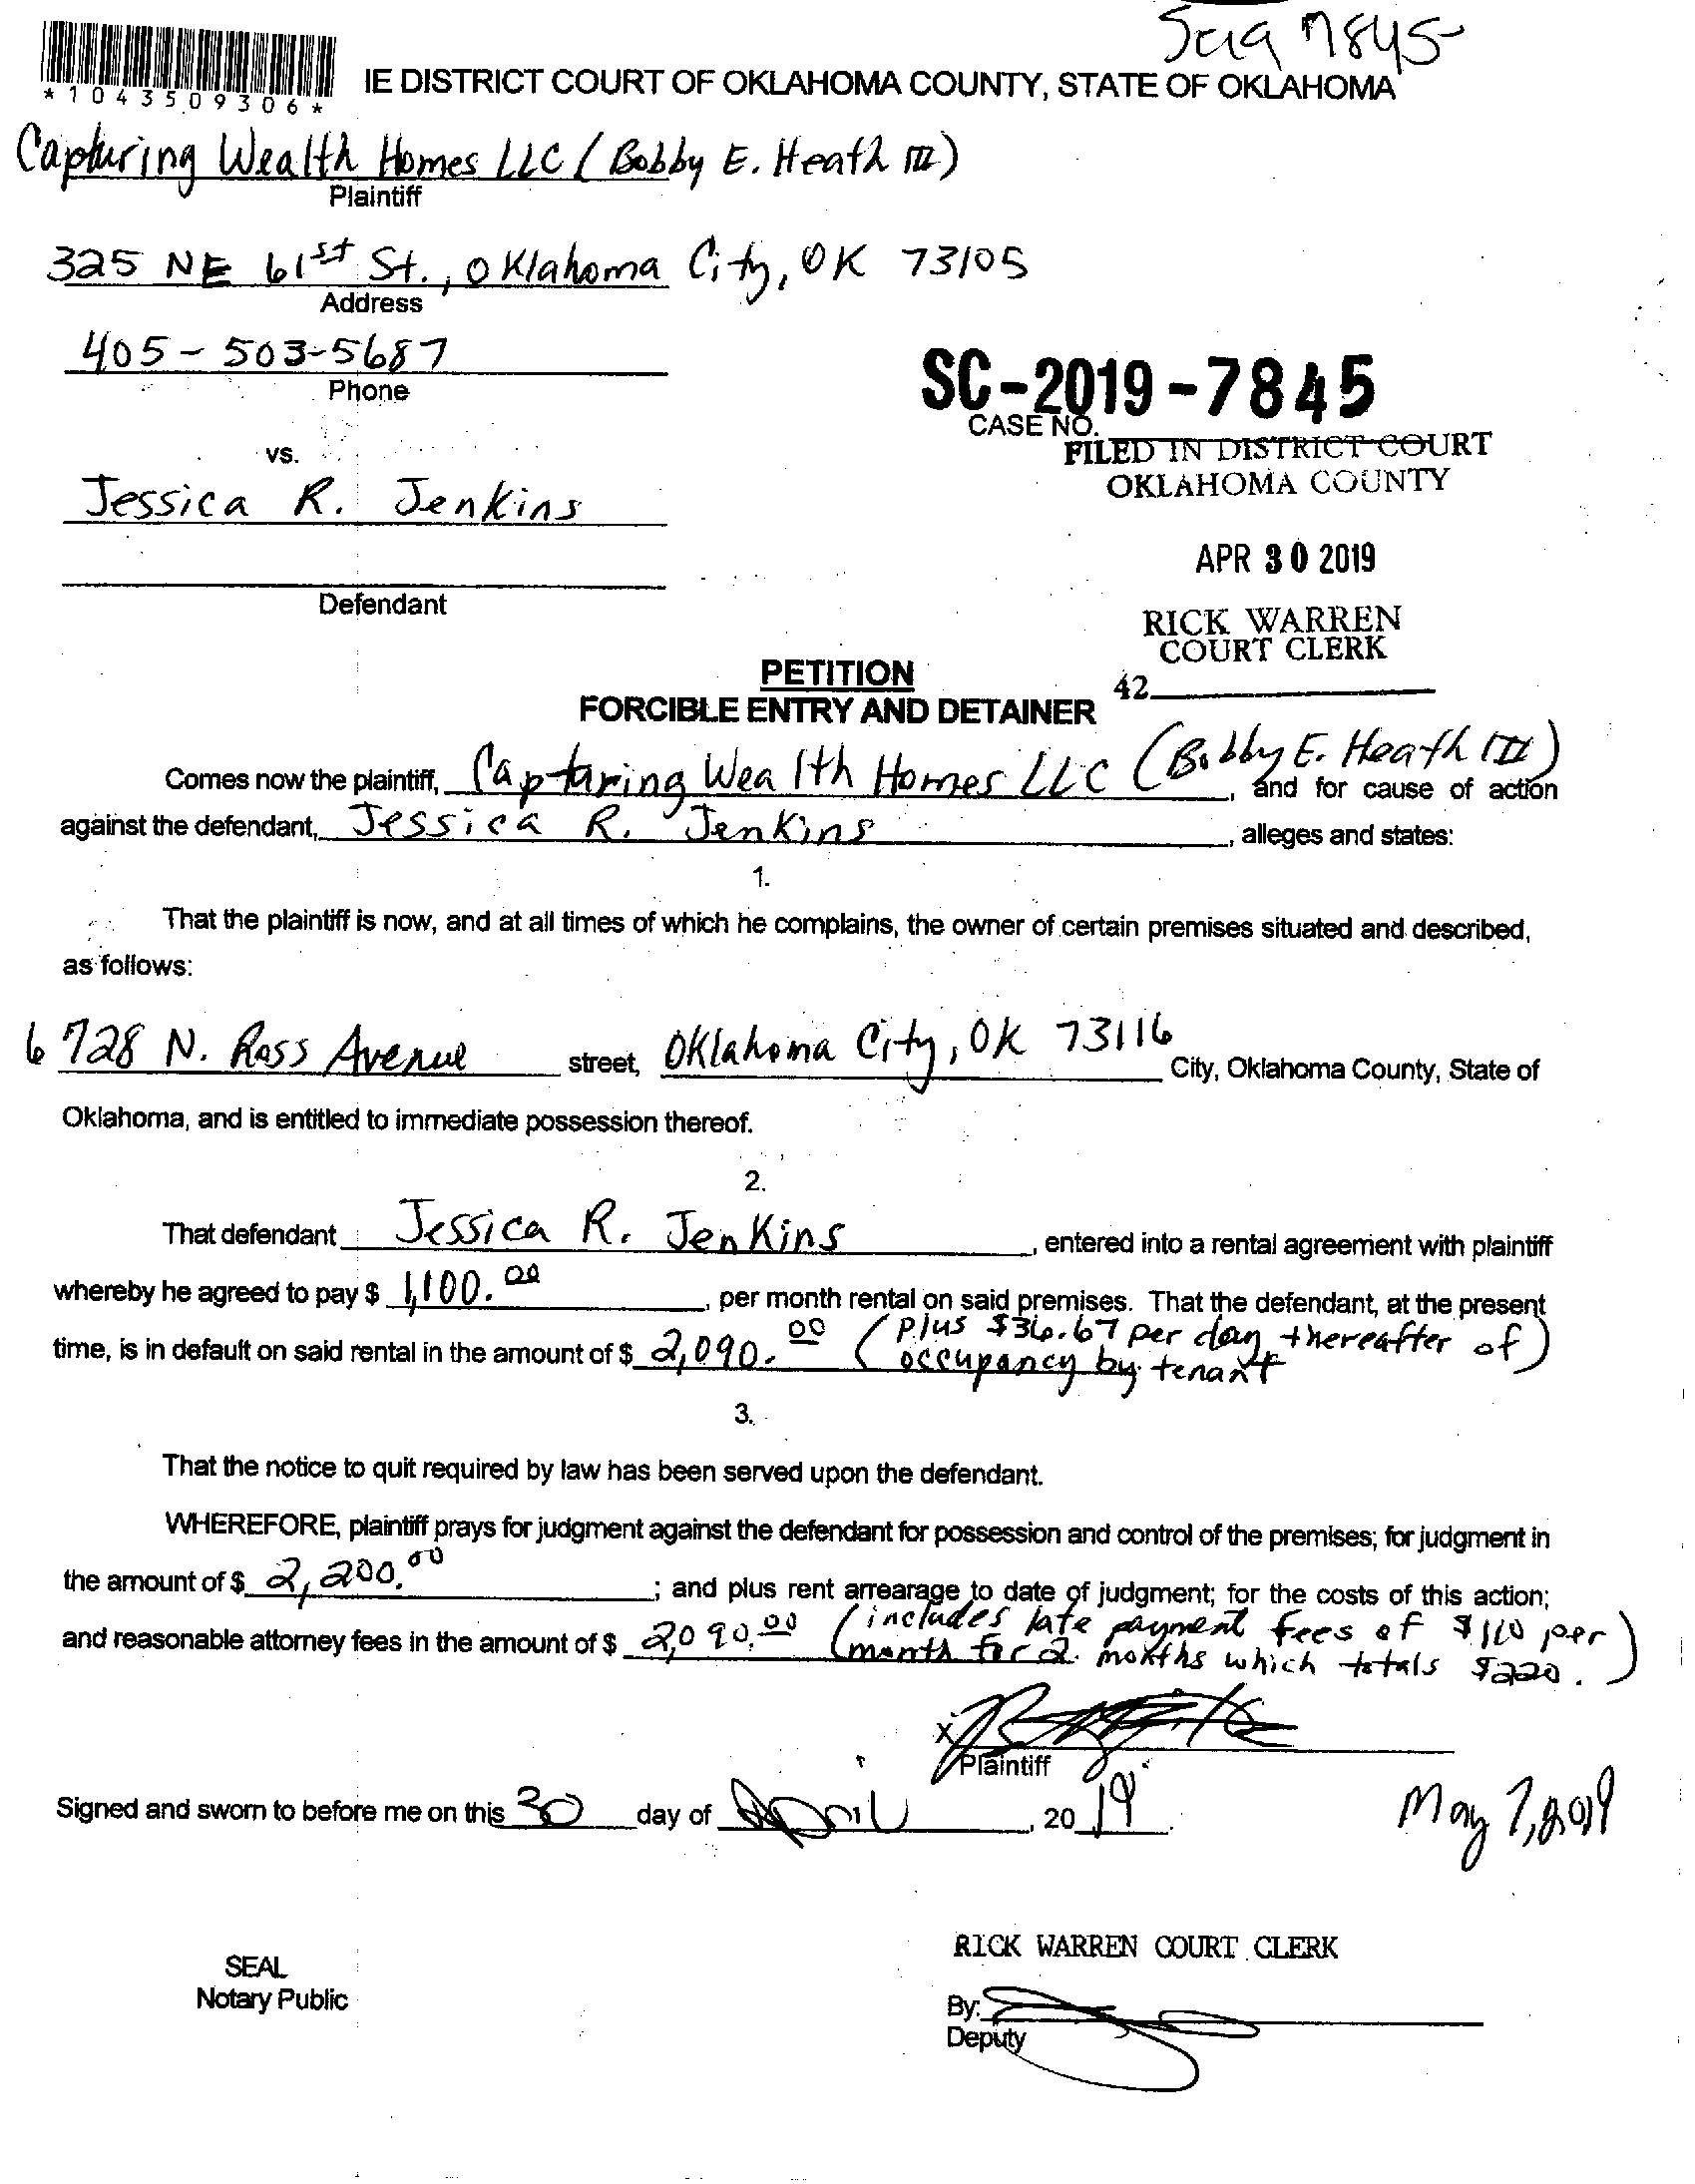 Sc19 7845
*1043509306*
IE DISTRICT COURT OF OKLAHOMA COUNTY, STATE OF OKLAHOMA
Capturing Wealth Homes LLC (Bobby E. Heath III)
Plaintiff
325 NE 61st St., Oklahoma City, OK 73105
Address
405-503-5687
Phone
SC-2019-7845
CASE NO.
FILED IN DISTRICT COURT
OKLAHOMA COUNTY
vs.
Jessica R. Jenkins
APR 30 2019
Defendant
RICK WARREN
COURT CLERK
42
PETITION
FORCIBLE ENTRY AND DETAINER
Comes now the plaintiff, Capturing Wealth Homes LLC (Bobby E. Heath III), and for cause of action
against the defendant, Jessica R. Jenkins, alleges and states:
1.
That the plaintiff is now, and at all times of which he complains, the owner of certain premises situated and described,
as follows:
6728 N. Ross Avenue street, Oklahoma City, OK 73116 City, Oklahoma County, State of
Oklahoma, and is entitled to immediate possession thereof.
2.
That defendant Jessica R. Jenkins, entered into a rental agreement with plaintiff
whereby he agreed to pay $ 1,100.00, per month rental on said premises. That the defendant, at the present
time, is in default on said rental in the amount of $ 2,090.00 (plus $36.67 per day thereafter of
occupancy by tenant)
3.
That the notice to quit required by law has been served upon the defendant.
WHEREFORE, plaintiff prays for judgment against the defendant for possession and control of the premises; for judgment in
the amount of $ 2,200.00; and plus rent arrearage to date of judgment; for the costs of this action;
and reasonable attorney fees in the amount of $ 2,090.00 (includes late payment fees of $110 per
month for 2 months which totals $220.)
X
Plaintiff
Signed and sworn to before me on this 30 day of April, 2019.
May 7, 2019
RICK WARREN COURT CLERK
SEAL
Notary Public
By:
Deputy